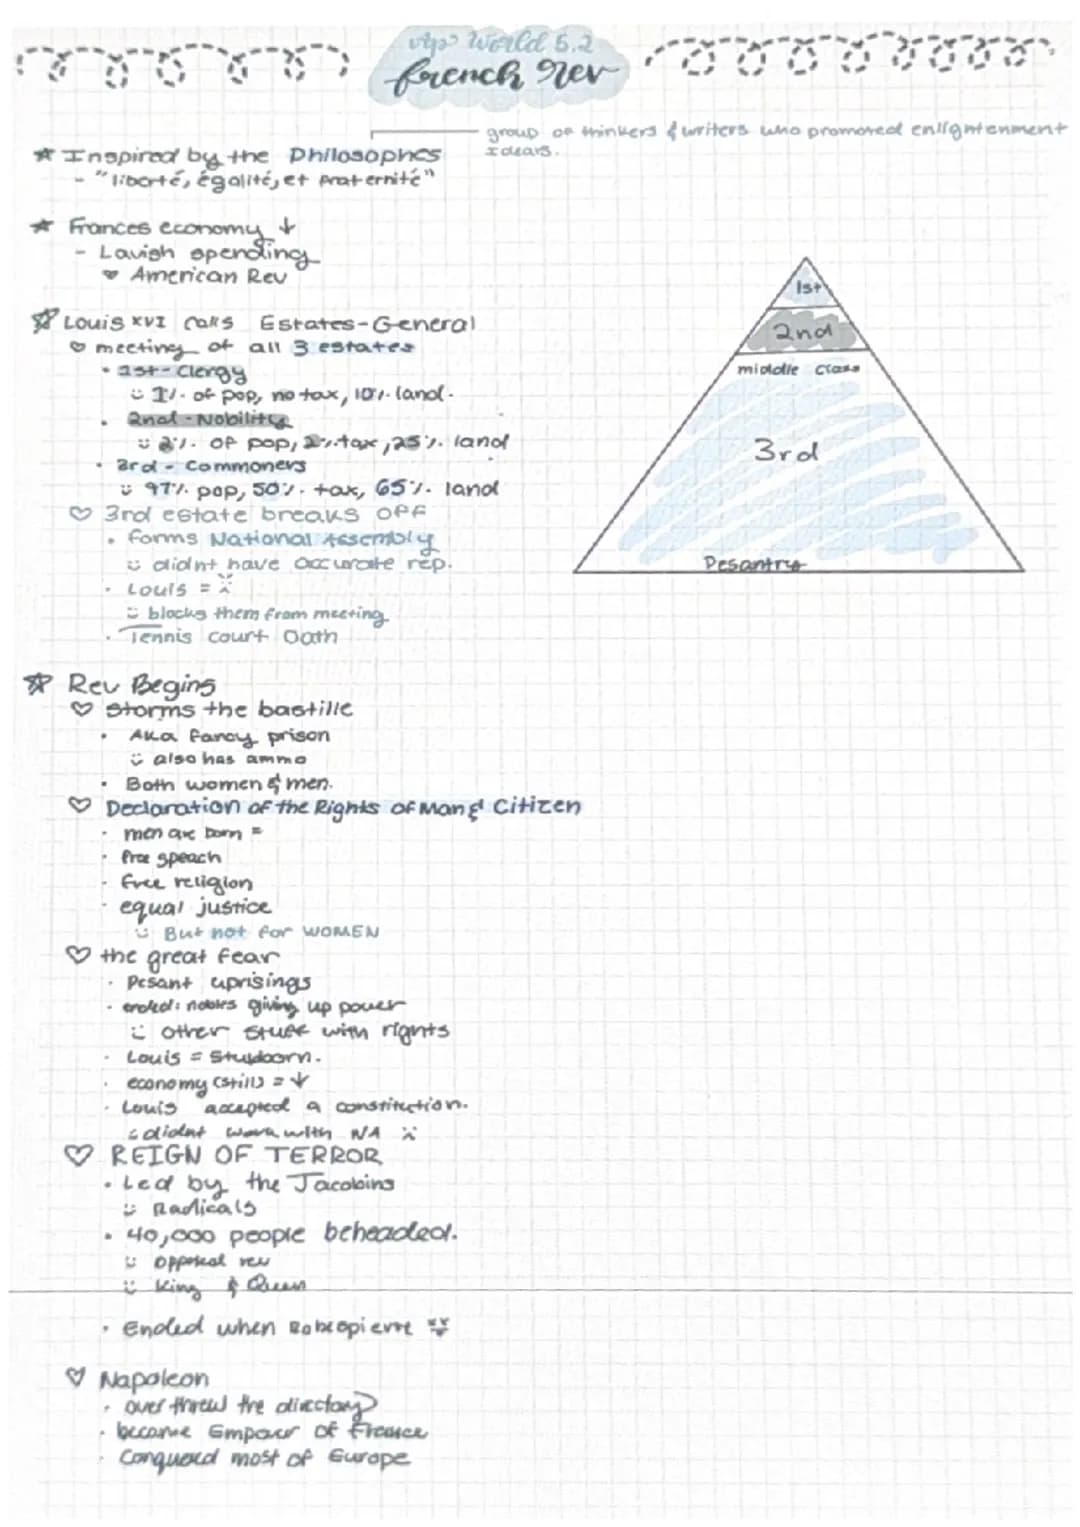 AP World 5.2
french rev
group of thinkers & writers who promoted enlightenment
Ideas.
Inspired by the Philosophes
- "liberté, égalité, et fraternité"
Frances economy ↓
- Lavish spending
American Rev
Louis XVI calls Estates-General
meeting of all 3 estates
1st - Clergy
1% of pop, no tax, 10% land.
2nd - Nobility
2% of pop, 2% tax, 25% land
3rd - Commoners
97% pop, 50% tax, 65% land
3rd estate breaks off
forms National Assembly
didnt have accurate rep.
Louis =
blocks them from meeting
Tennis Court Oath
1st
2nd
middle class
3rd
Pesantry
Rev Begins
Storms the bastille
AKA fancy prison
also has ammo
Both women & men.
Declaration of the Rights of Man & Citizen
men are born =
free speach
free religion
equal justice
But not for WOMEN
the great fear
Pesant uprisings
ended: nobles giving up power
other stuff with rights
Louis = Stubborn.
economy (still) = ↓
Louis accepted a constitution.
didnt work with NA
REIGN OF TERROR
Led by the Jacobins
Radicals
40,000 people beheaded.
opposed rev
King & Queen
Ended when Robespierre
Napoleon
over threw the directory
became Emperor of France
Conquered most of Europe